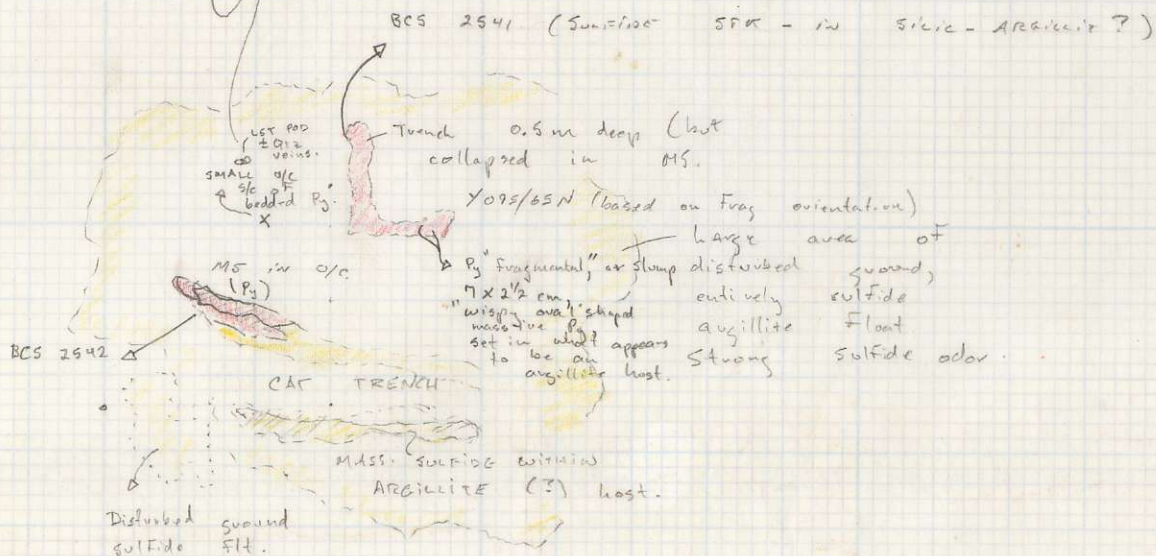 BCS 2541 (Sulfide STK - in Silic - ARGillit ?)
LST POD
± QTZ
veins.
SMALL o/c
s/c of
bedded Py.
X
Trench 0.5m deep (but
collapsed in MS.
Y095/65N (based on Frag orientation)
Large area of
disturbed ground,
entirely sulfide
argillite Float
Strong sulfide odor.
Py "fragmental," or slump
7 x 2 1/2 cm,
"wispy oval" shaped
massive Py,
set in what appears
to be an
argillite host.
MS in o/c
(Py)
BCS 2542
CAT TRENCH
MASS. SULFIDE WITHIN
ARGILLITE (?) host.
Disturbed ground
sulfide Flt.